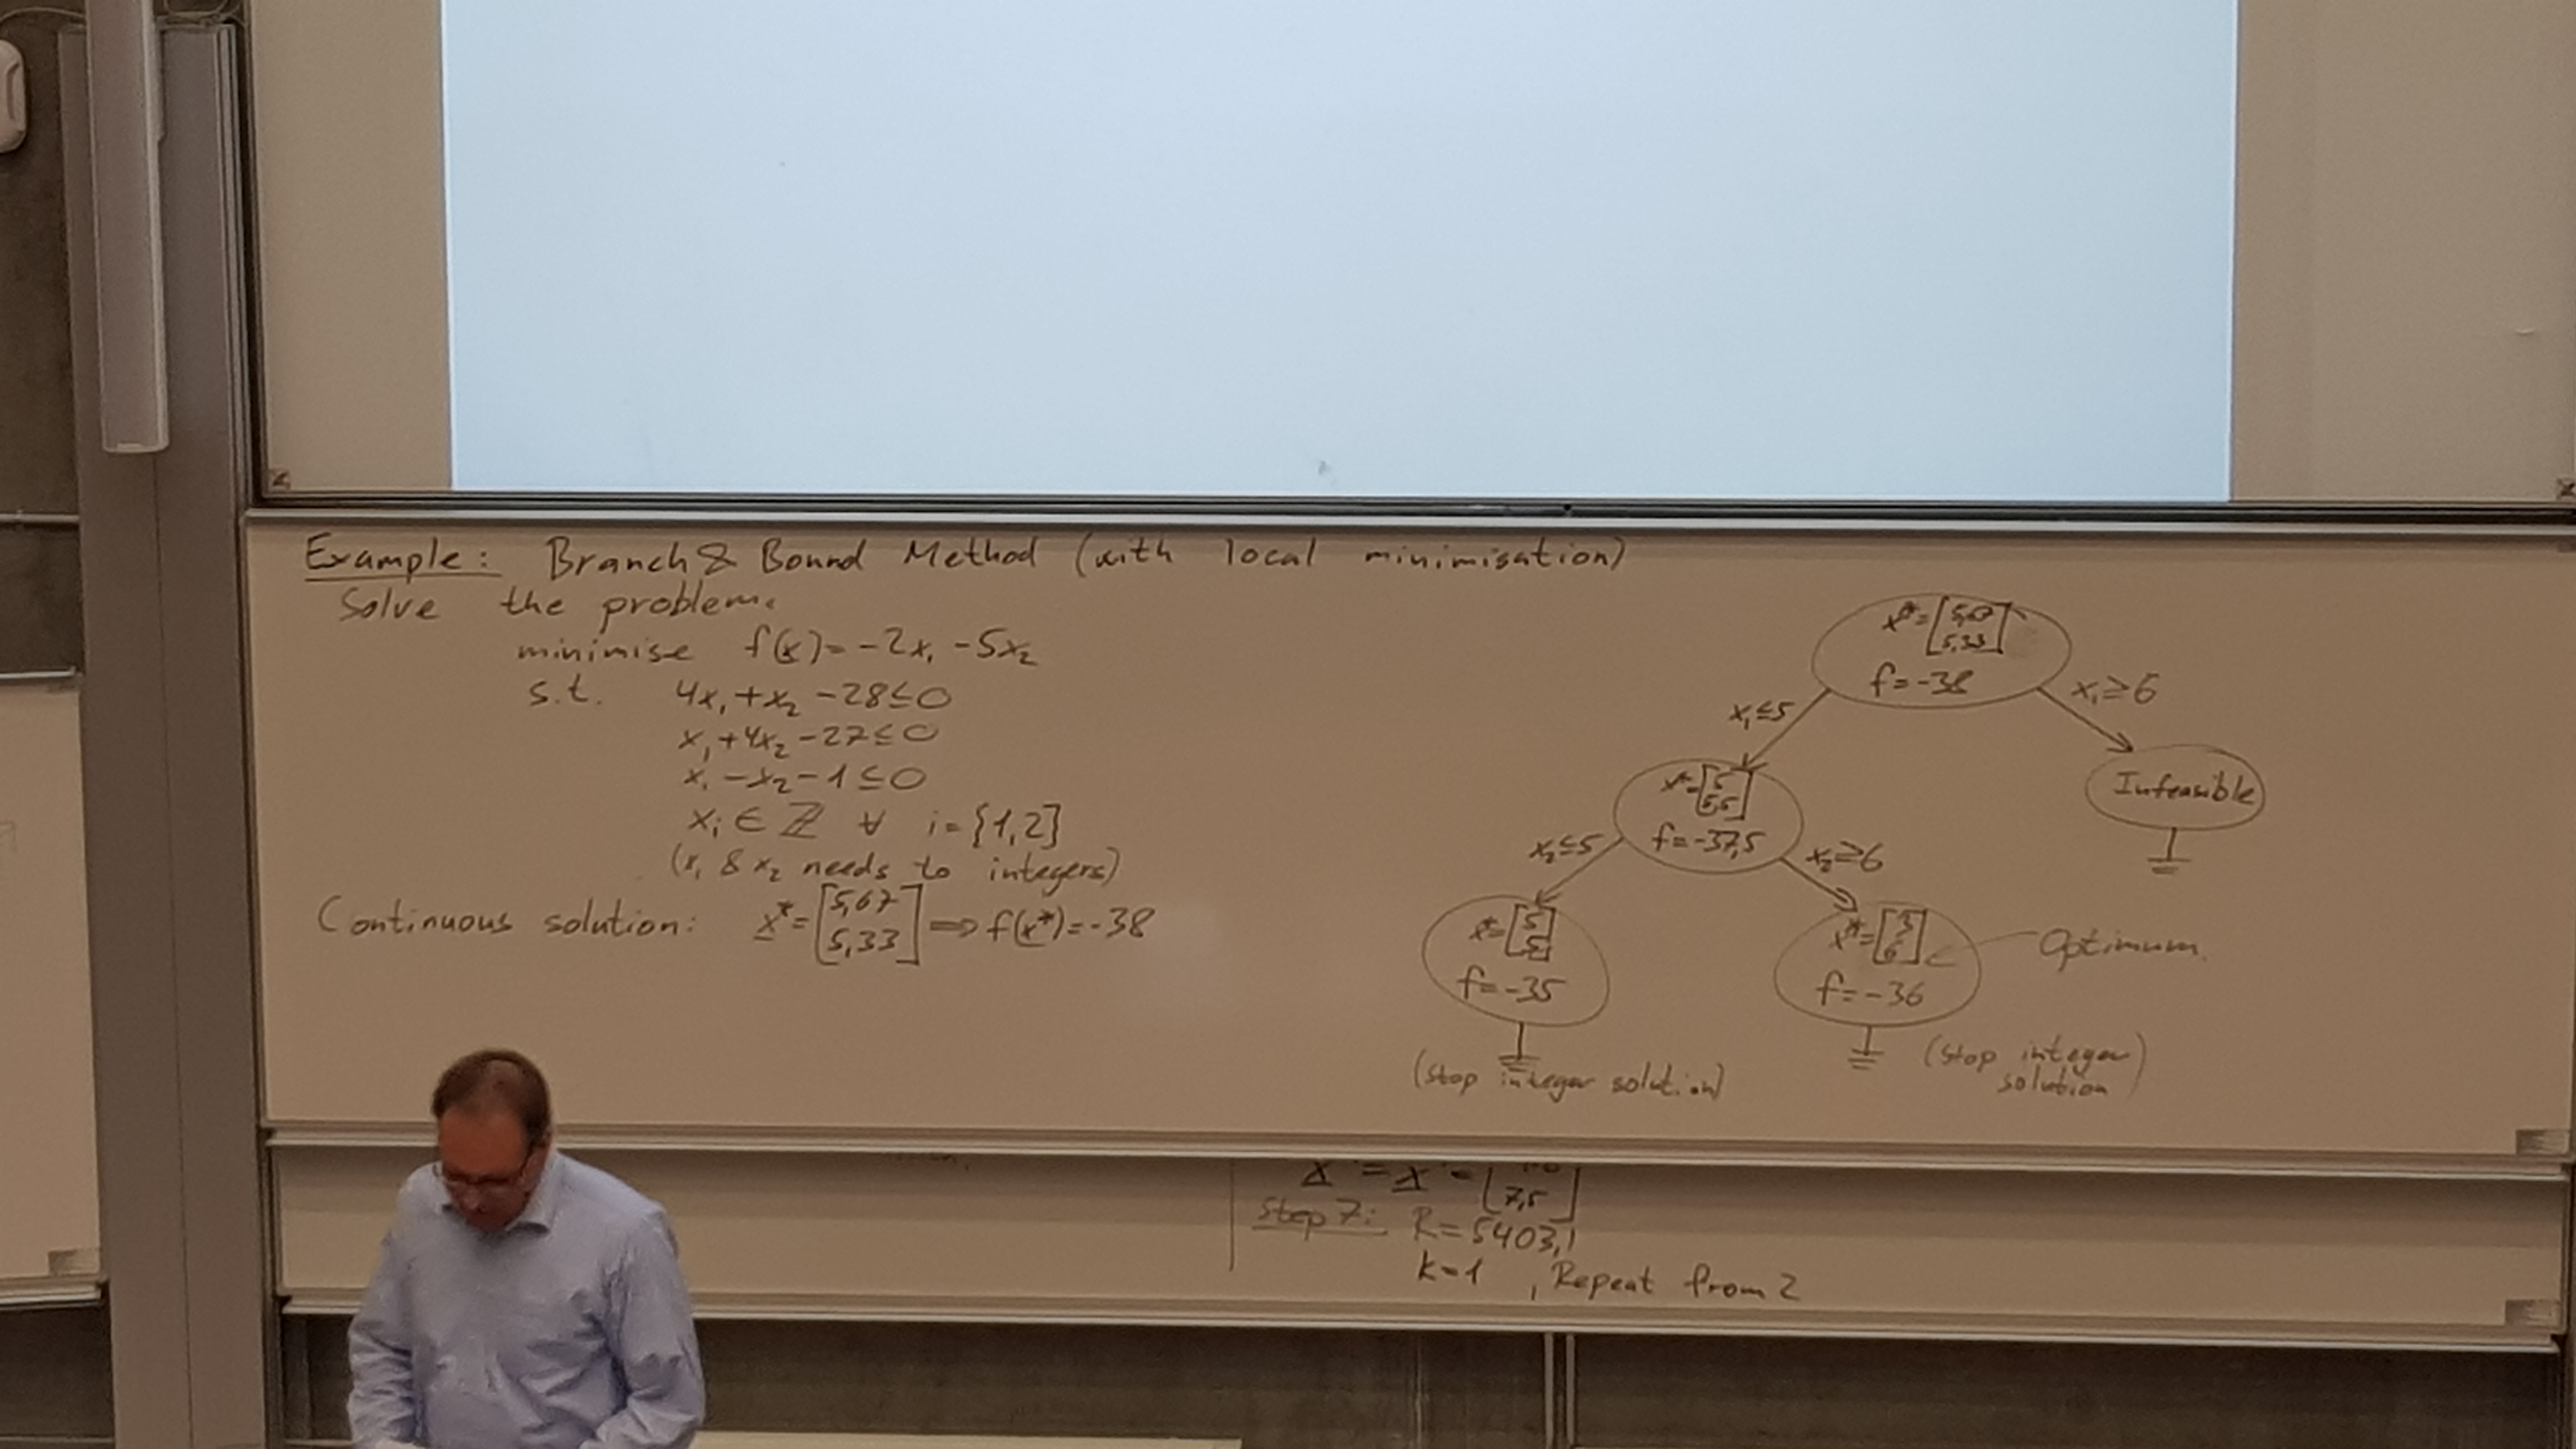 Example: Branch & Bound Method (with local minimisation)
Solve the problem.
minimise f(x)=-2x₁-5x₂
s.t. 4x₁+x₂-28≤0
x₁+4x₂-27≤0
x₁-x₂-1≤0
xᵢ ∈ ℤ ∀ i={1,2}
(x₁ & x₂ needs to integers)
Continuous solution: x*=[5,67 5,33] ⟹ f(x*)=-38
x*=[5,67 5,33]
f=-38
x₁≤5
x₁≥6
x*=[5 5,5]
f=-37,5
Infeasible
x₂≤5
x₂≥6
x*=[5 5]
f=-35
x*=[3 6]
f=-36
Optimum
(stop integer solution)
(stop integer
solution)
7,5
Step 7: R=5403,1
k=1, Repeat from 2